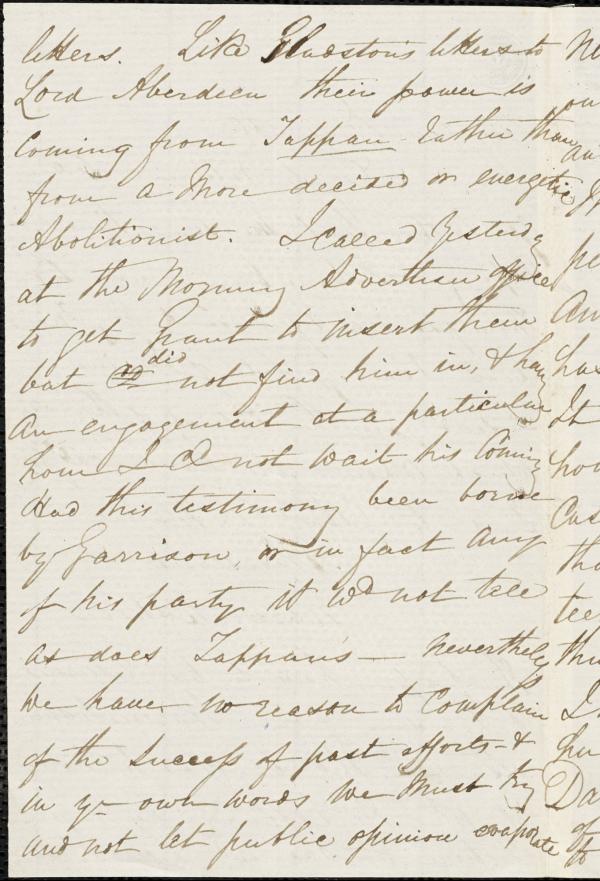 letters. Like Gladston's letters to
Lord Aberdeen their power is
coming from Tappan rather than
from a more decided or energetic
Abolitionist. I called Yesterdy
at the Morning Advertiser office
to get Grant to insert them
but did not find him in, & havg
an engagement at a particular
hour I cd not wait his coming
Had this testimony been borne
by Garrison, or in fact any
of his party it wd not tell
as does Tappan's — nevertheless
we have no reason to complain
of the success of past efforts &
in yr own words we must try
and not let public opinion evaporate